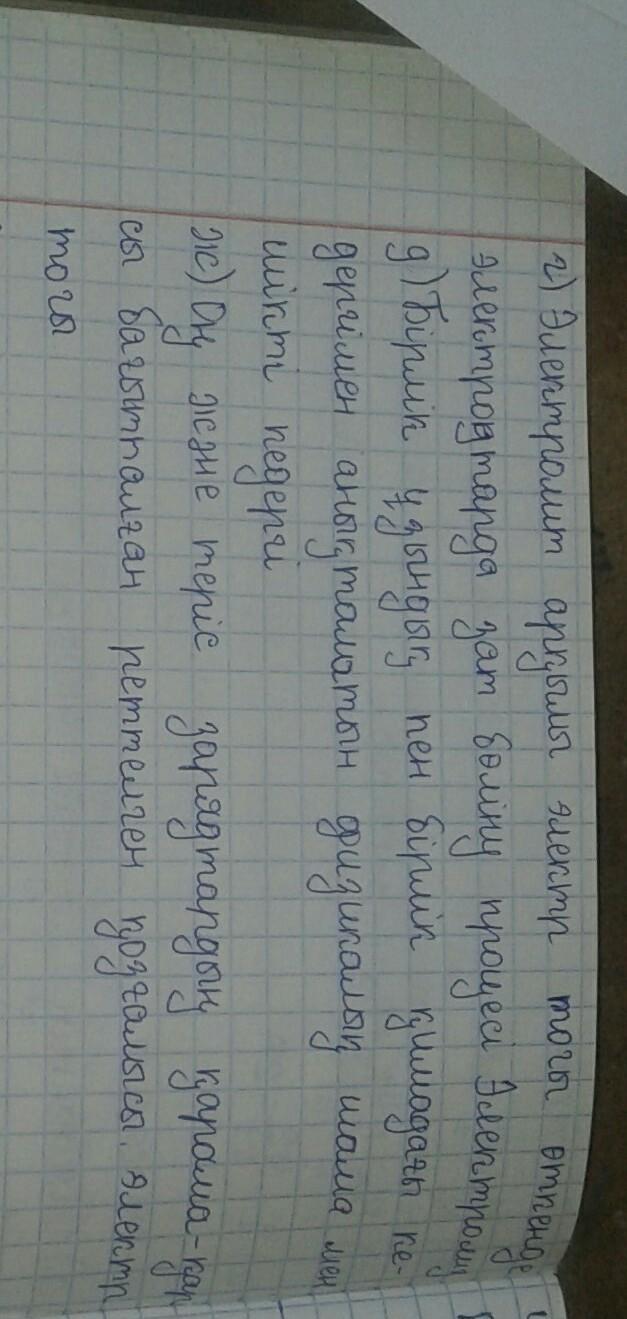 г) Электролит арқылы электр тогы өткенде
электродтарда зат бөліну процесі Электролиз
д) Бірлік ұзындық пен бірлік қимадағы ке-
дергімен анықталатын физикалық шама мен
шікті кедергі
ж) Оң және теріс зарядтардың қарама-қар
сы бағытталған реттелген қозғалысы. электр
тогы